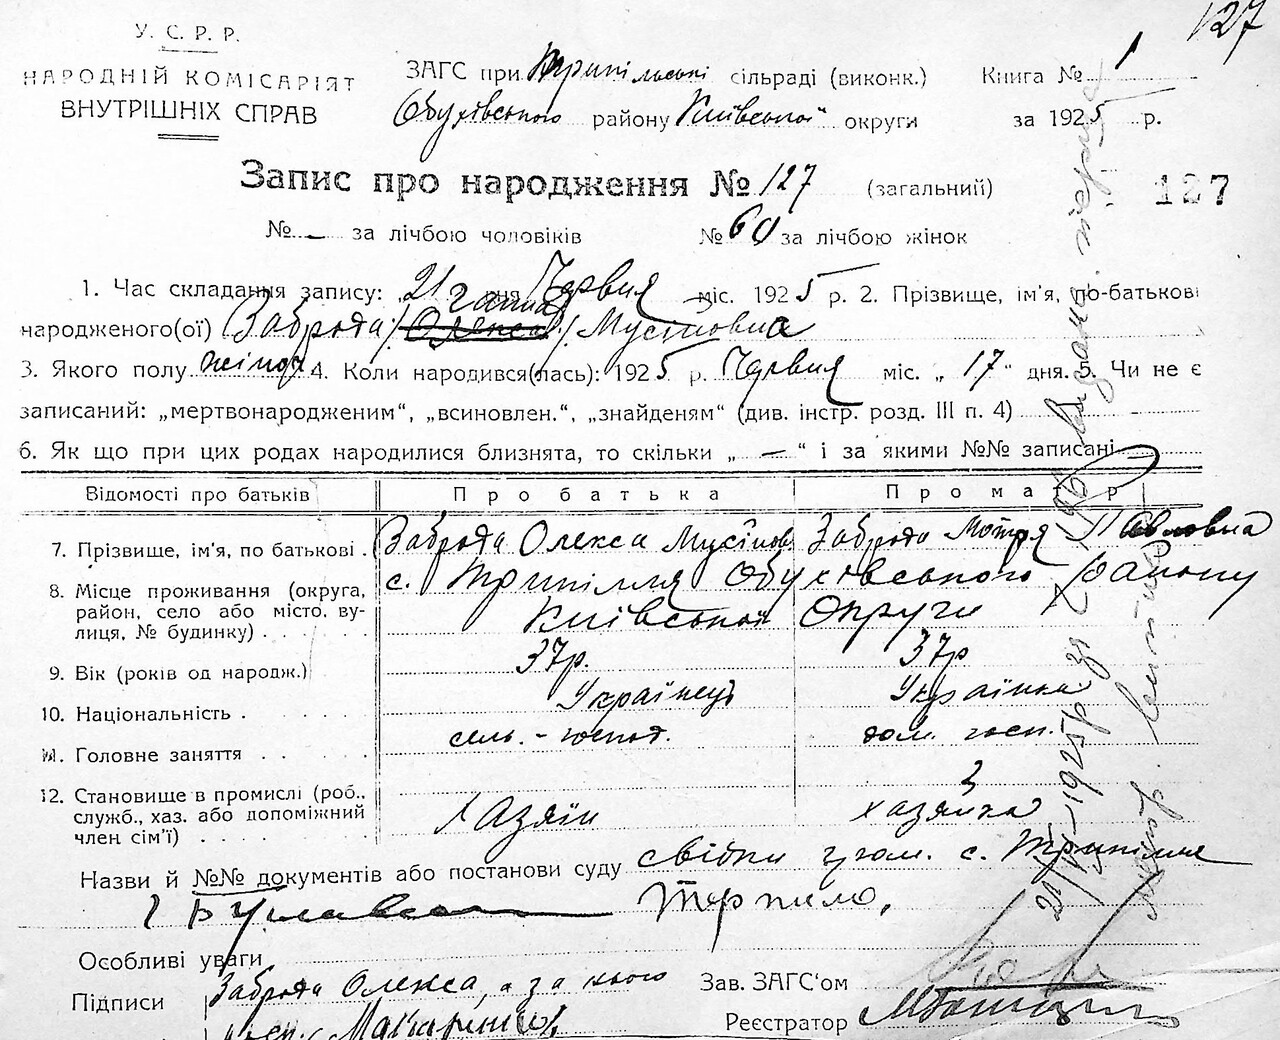 127
У. С. Р. Р.
НАРОДНІЙ КОМІСАРІЯТ
ВНУТРІШНІХ СПРАВ
ЗАГС при Трипільські сільраді (виконк.)
Обухівського району Київської округи
Книга № 1
за 1925 р.
Запис про народження № 127 (загальний)
127
№ – за лічбою чоловіків № 60 за лічбою жінок
1. Час складання запису: 21 дня Червня міс. 1925 р. 2. Прізвище, ім'я, по-батькові
Ганна
народженого(ої) Заброда /Олекса/ Мусіївна
3. Якого полу жіноч 4. Коли народився(лась): 1925 р. Червня міс. „ 17 “ дня. 5. Чи не є
записаний: „мертвонародженим“, „всиновлен.“, „знайденям“ (див. інстр. розд. III п. 4)
6. Як що при цих родах народилися близнята, то скільки „ — “ і за якими №№ записані
Відомості про батьків Про батька Про матір
7. Прізвище, ім'я, по батькові . Заброда Олекса Мусійов Заброда Мотря Павловна
8. Місце проживання (округа, район, село або місто, вулиця, № будинку) . . . . с. Трипілля Обухівського району
Київської Округи
9. Вік (років од народж.) 37р. 37р
10. Національність . Українець Українка
11. Головне заняття . . . . . сель.-господ. дом. госп.
12. Становище в промислі (роб.,
служб., хаз. або допоміжний
член сім'ї) . . . . . . Хазяїн хазяйка
Назви й №№ документів або постанови суду свідки гром. с. Трипілля
Терпило,
Особливі уваги
Підписи Заброда Олекса, а за нього
Зав. ЗАГС'ом
Реєстратор